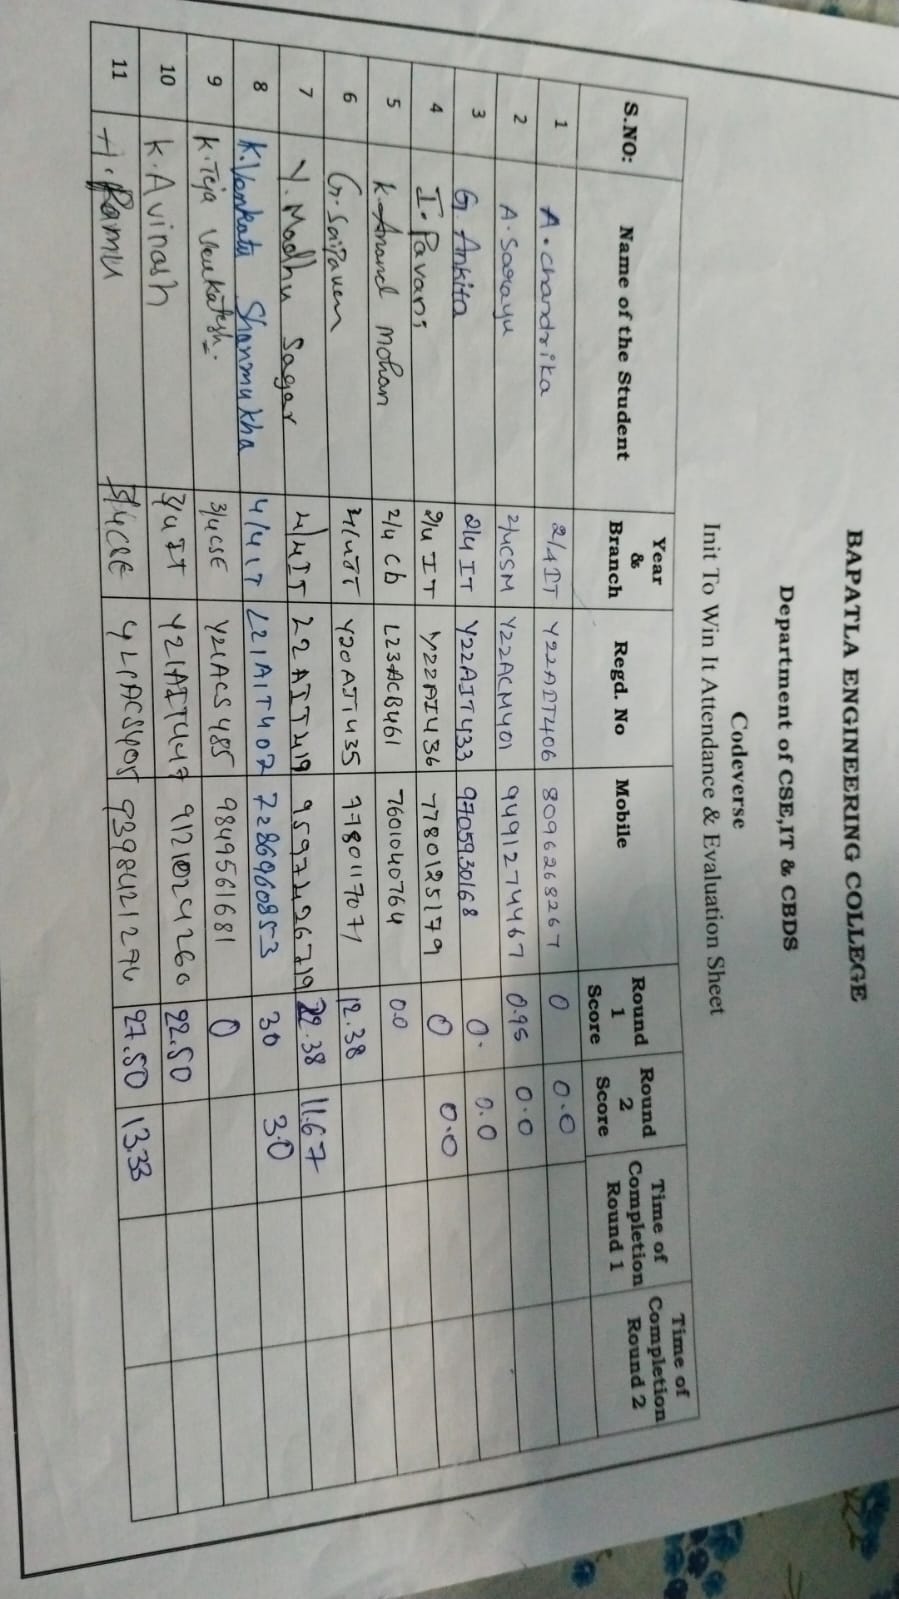 BAPATLA ENGINEERING COLLEGE
Department of CSE,IT & CBDS
Codeverse
Init To Win It Attendance & Evaluation Sheet
S.NO: Name of the Student Year & Branch Regd. No Mobile Round 1 Score Round 2 Score Time of Completion Round 1 Time of Completion Round 2
1 A.chandrika 2/4 IT Y22AIT406 8096268267 0 0.0
2 A.Sarayu 2/4CSM Y22ACM401 9491274467 0.95 0.0
3 G.Ankita 2/4 IT Y22AIT433 9705930168 0. 0.0
4 I.Pavani 2/4 IT Y22AIT436 7780125179 0 0.0
5 K.Anand Mohan 2/4 Cb L23ACB461 7601040764 0.0
6 G.SaiPaven 4/4IT Y20AIT435 778011707 12.38
7 Y.Madhu Sagar 4/4IT L22AIT419 9597426719 22.38 11.67
8 K.Venkata Shanmukha 4/4IT L21AIT402 7286960853 30 30
9 K.Teja Venkatesh. 3/4CSE Y21ACS485 9849561681 0
10 K.Avinash 3/4 IT Y21AIT447 9121024260 22.50
11 H.Ramu 3/4CSE Y21ACS405 9398421274 27.50 13.33